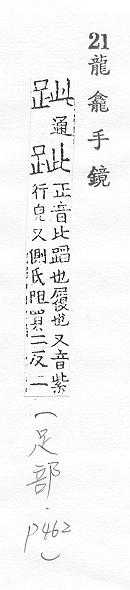 21龍龕手鏡
通跐正音此蹈也履也又音紫
行皃又側氏阻買二反二
(足部·p462)